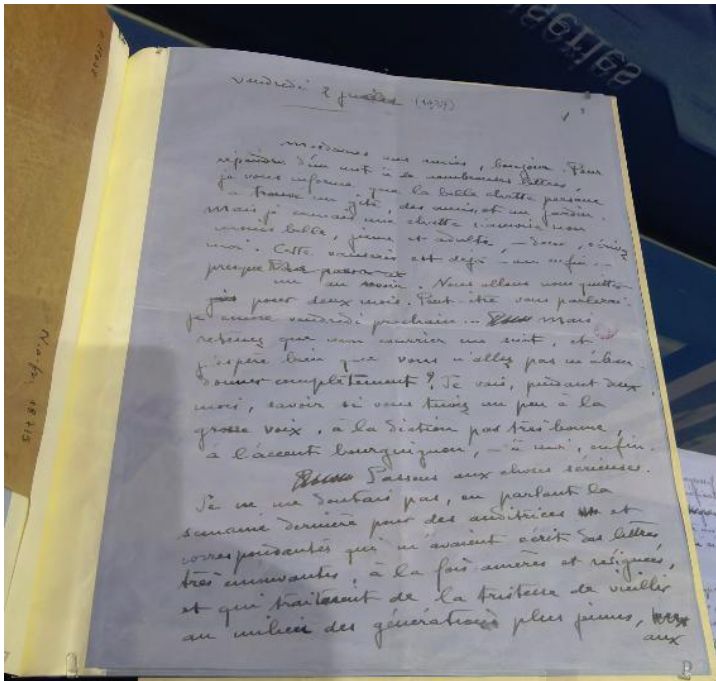 vendredi 2 juillet (1937)
1
mesdames mes amies, bonjour. Pour
répondre d'un mot à de nombreuses lettres,
je vous informe que la belle chatte persane
a trouvé un gîte, des amis, et un jardin.
Mais je connais une chatte siamoise non
moins belle, jeune et adulte, – donc, écrivez
moi. Cette causerie est déjà – ou enfin –
presque
un au revoir. Nous allons nous quitter
pour deux mois. Peut-être vous parlerai-
je encore vendredi prochain... Mais
retenez que mon courrier me suit, et
j'espère bien que vous n'allez pas m'aban-
donner complètement ? Je vais, pendant deux
mois, savoir si vous tenez un peu à la
grosse voix, à la diction pas très bonne,
à l'accent bourguignon, – à moi, enfin.
Passons aux choses sérieuses.
Je ne me doutais pas, en parlant la
semaine dernière pour des auditrices et
correspondantes qui m'avaient écrit des lettres
très émouvantes, à la fois amères et résignées,
et qui traitaient de la tristesse de vieillir
au milieu des générations plus jeunes,
aux
N.a.fr. 18715